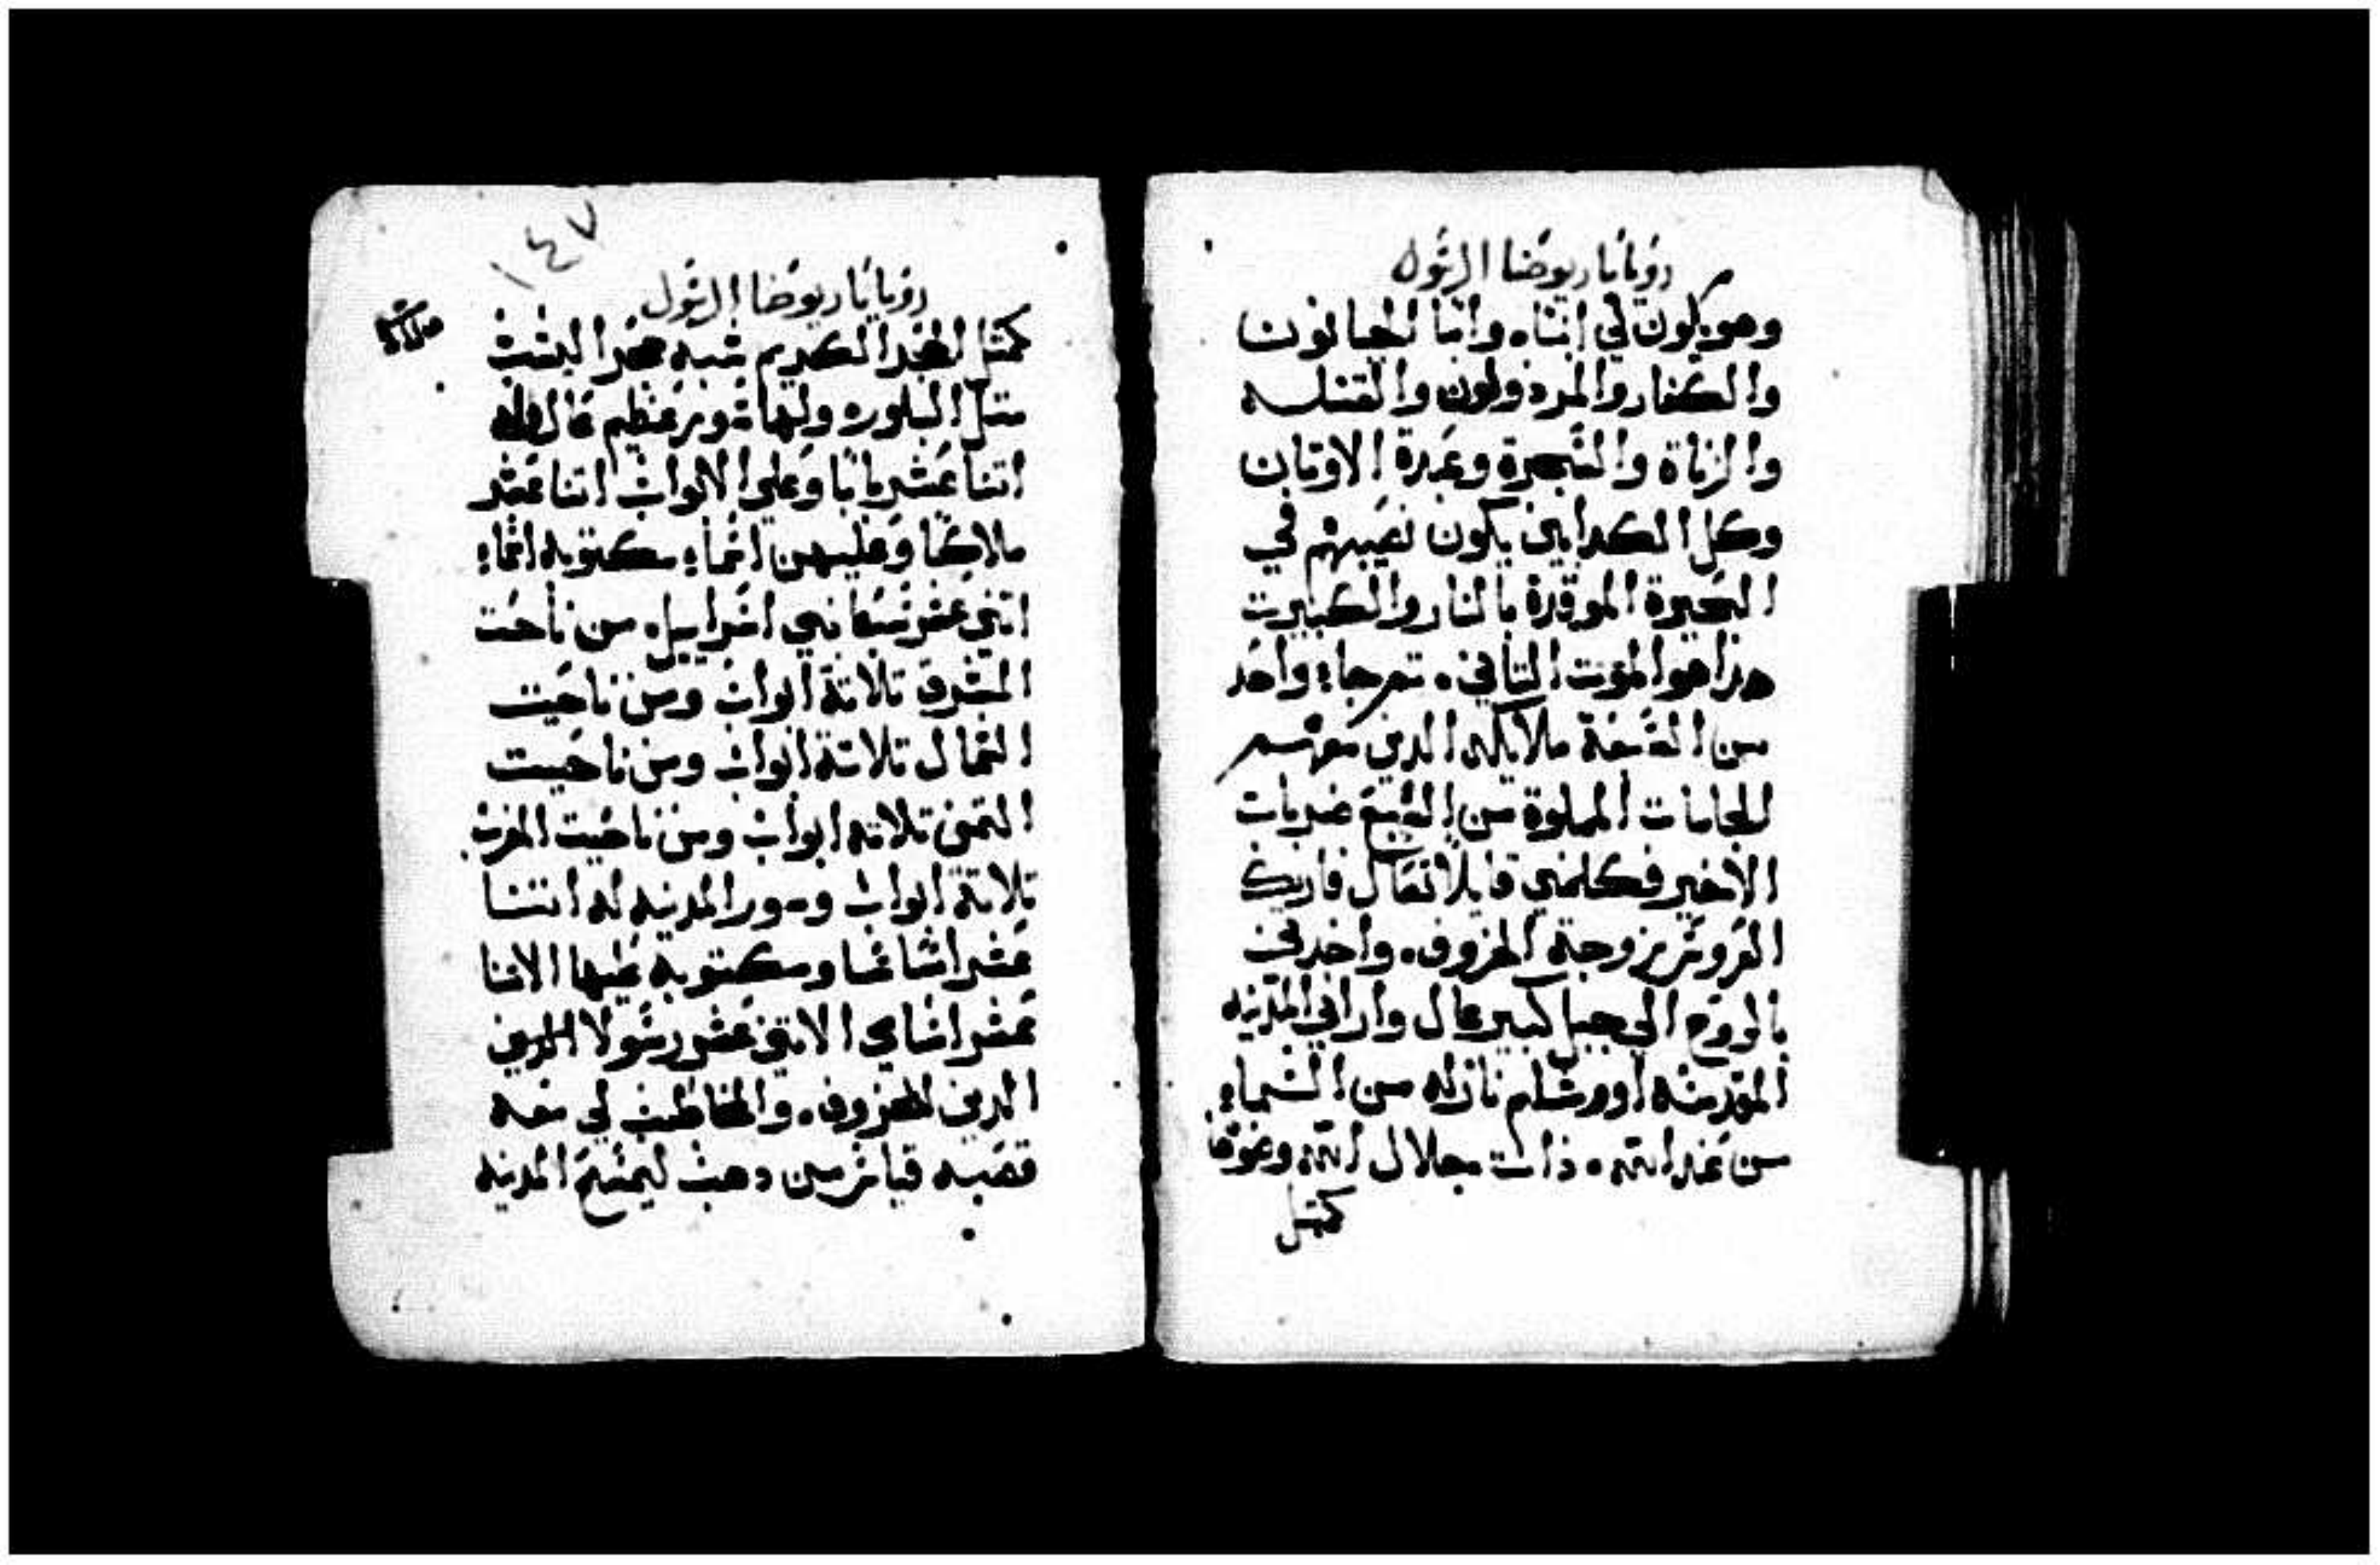 رؤيا ماريوحنا الرسول
وهو يكون لي ابناه واما الجبانون
والكفار والمرذولون والقتله
والزناة والسحرة وعبدة الاوتان
وكل الكدابين يكون نصيبهم في
البحيرة الموقدة بالنار والكبريت
هذا هو الموت التاني. تم جاء واحد
من السبعة ملايكه الدين معهم
الجامات المملوة من السبع ضربات
الاخير فكلمني قايلا تعال فاريك
العروس زوجة الخروف. واخدني
بالروح الي جبل كبير عال واراني المدينه
المقدسه اورشلم نازله من السماء
من عند الله. ذات جلال الله وضوها
كمتل
١٤٧
رؤيا ماريوحنا الرسول
كمتل الحجر الكريم شبه حجر اليشب
متل البلوره ولها سور عظيم عال وله
اتنا عشر بابا وعلي الابواب اتنا عشر
ملاكا وعليهن اسماء مكتوبه اسماء
اتني عشر سبط بني اسراييل. من ناحت
المشرق تلاتة ابواب ومن ناحيت
الشمال تلاتة ابواب ومن ناحيت
اليمن تلاته ابواب ومن ناحيت المغرب
تلاتة ابواب وسور المدينه له اتنا
عشر اساسا ومكتوبه عليها الاتنا
عشر اسامي الاتني عشر رسولا
الدين للخروف. والمخاطب لي معه
قصبه قياس من دهب ليمسح المدينه